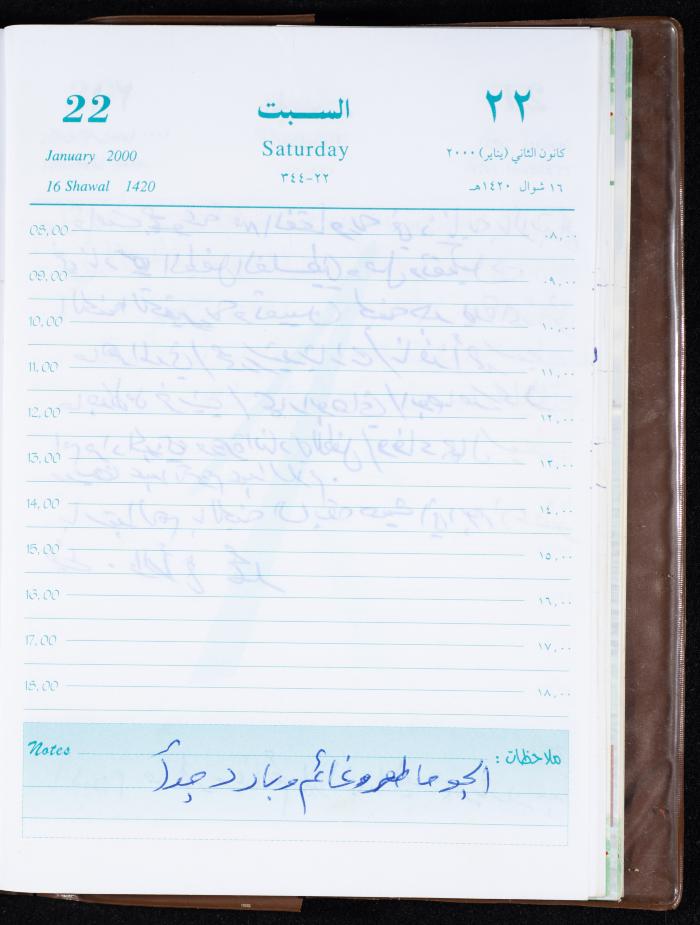 22 السبت ٢٢
January 2000 Saturday كانون الثاني (يناير) ٢٠٠٠
16 Shawal 1420 ٢٢-٣٤٤ ١٦ شوال ١٤٢٠هـ
08,00 ٠٨,٠٠
09,00 ٠٩,٠٠
10,00 ١٠,٠٠
11,00 ١١,٠٠
12,00 ١٢,٠٠
13,00 ١٣,٠٠
14,00 ١٤,٠٠
15,00 ١٥,٠٠
16,00 ١٦,٠٠
17,00 ١٧,٠٠
18,00 ١٨,٠٠
Notes ملاحظات :
الجو ماطر وغائم وبارد جداً